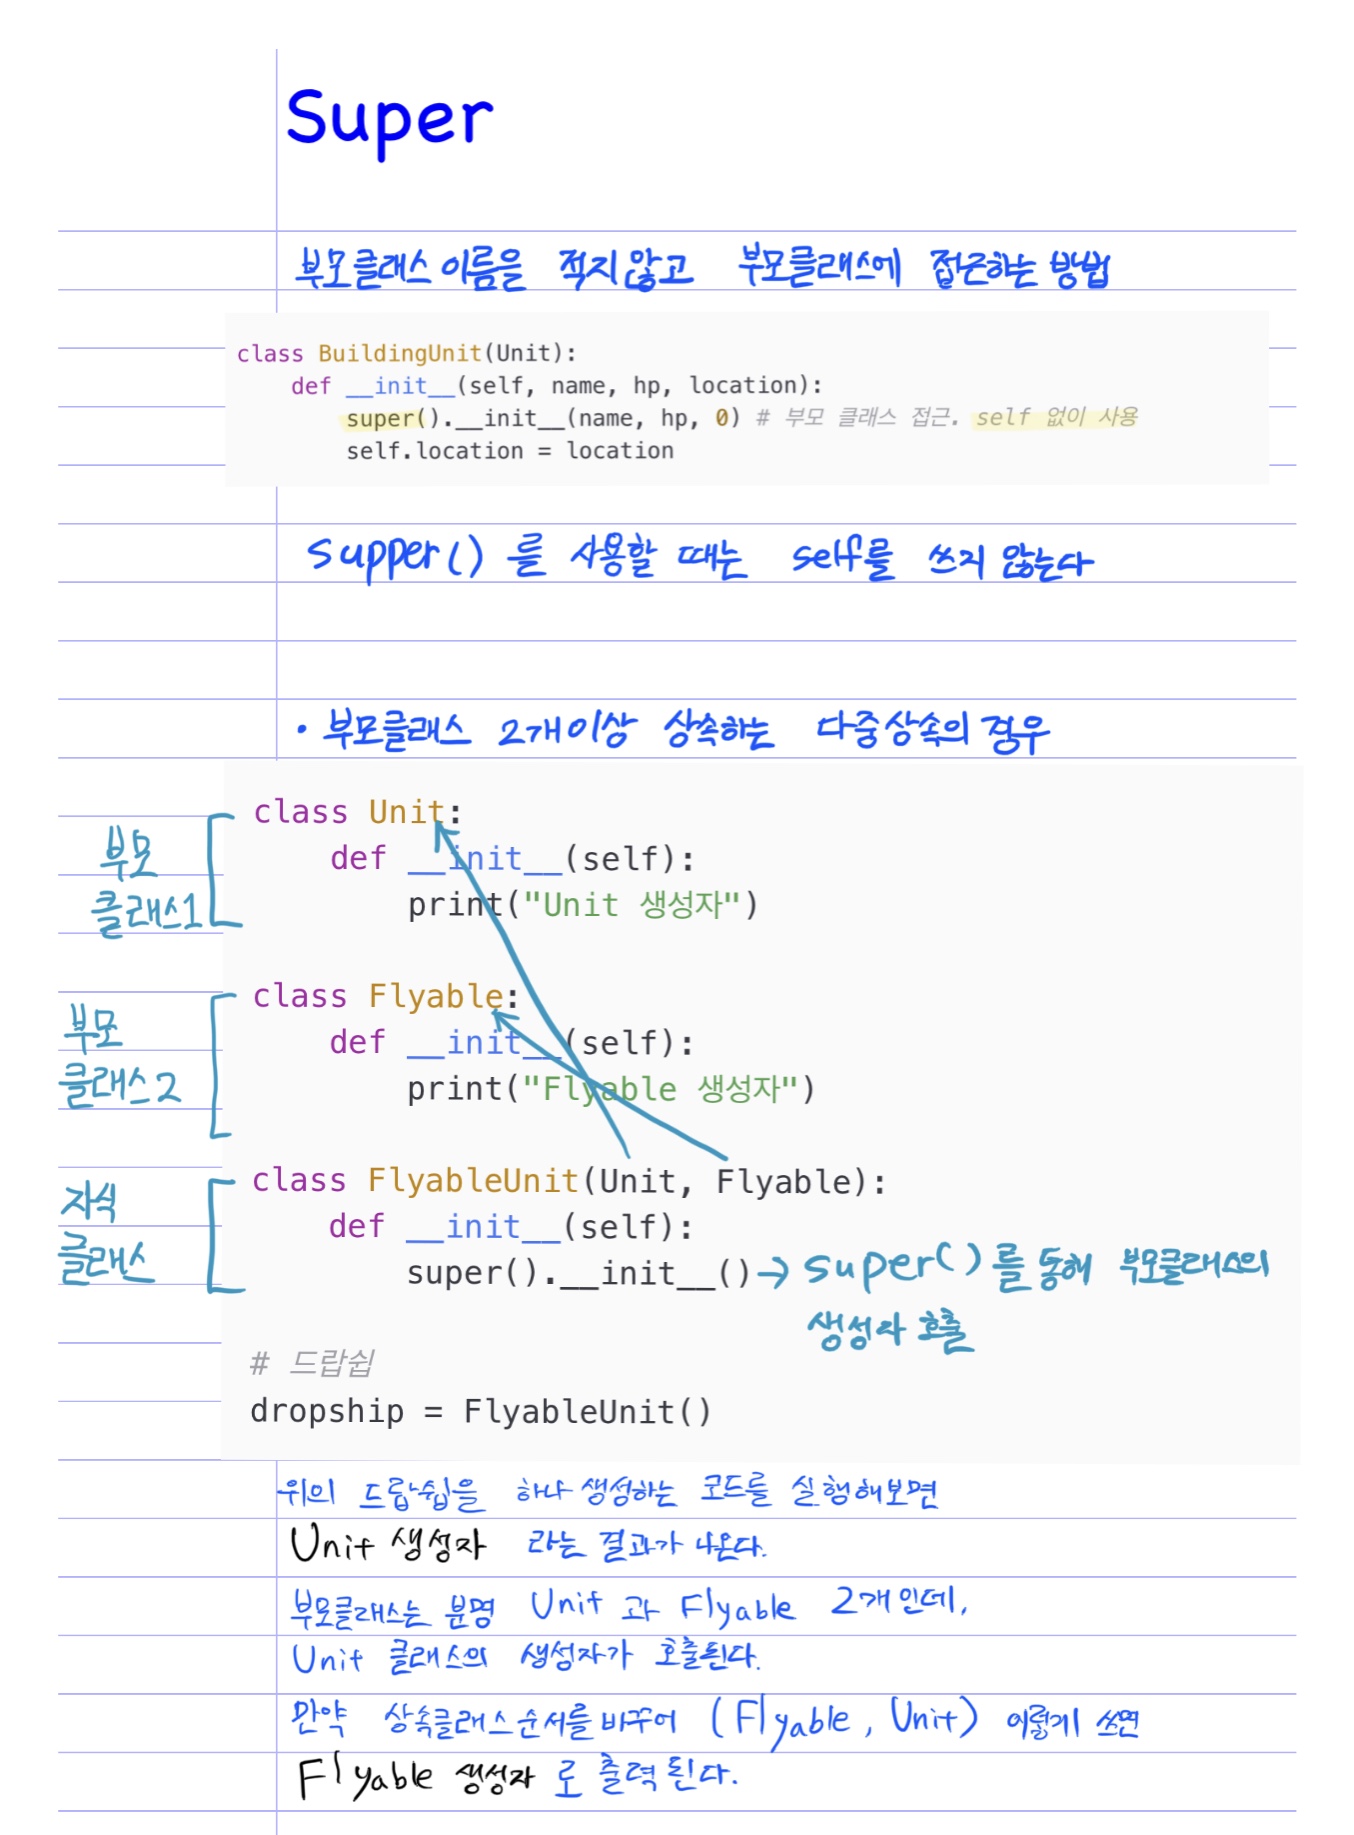 Super
부모클래스 이름을 적지않고 부모클래스에 접근하는 방법
class BuildingUnit(Unit):
    def __init__(self, name, hp, location):
        super().__init__(name, hp, 0) # 부모 클래스 접근. self 없이 사용
        self.location = location
supper() 를 사용할 때는 self를 쓰지 않는다
• 부모클래스 2개이상 상속하는 다중상속의 경우
부모
클래스1
class Unit:
    def __init__(self):
        print("Unit 생성자")
부모
클래스2
class Flyable:
    def __init__(self):
        print("Flyable 생성자")
자식
클래스
class FlyableUnit(Unit, Flyable):
    def __init__(self):
        super().__init__() → super()를 통해 부모클래스의
생성자 호출
# 드랍쉽
dropship = FlyableUnit()
위의 드랍쉽을 하나 생성하는 코드를 실행해보면
Unit 생성자 라는 결과가 나온다.
부모클래스는 분명 Unit 과 Flyable 2개인데,
Unit 클래스의 생성자가 호출된다.
만약 상속클래스순서를 바꾸어 (Flyable, Unit) 이렇게 쓰면
Flyable 생성자 로 출력된다.